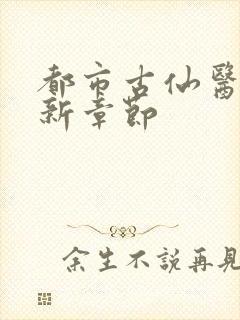 都市古仙醫
新章節
余生不說再見